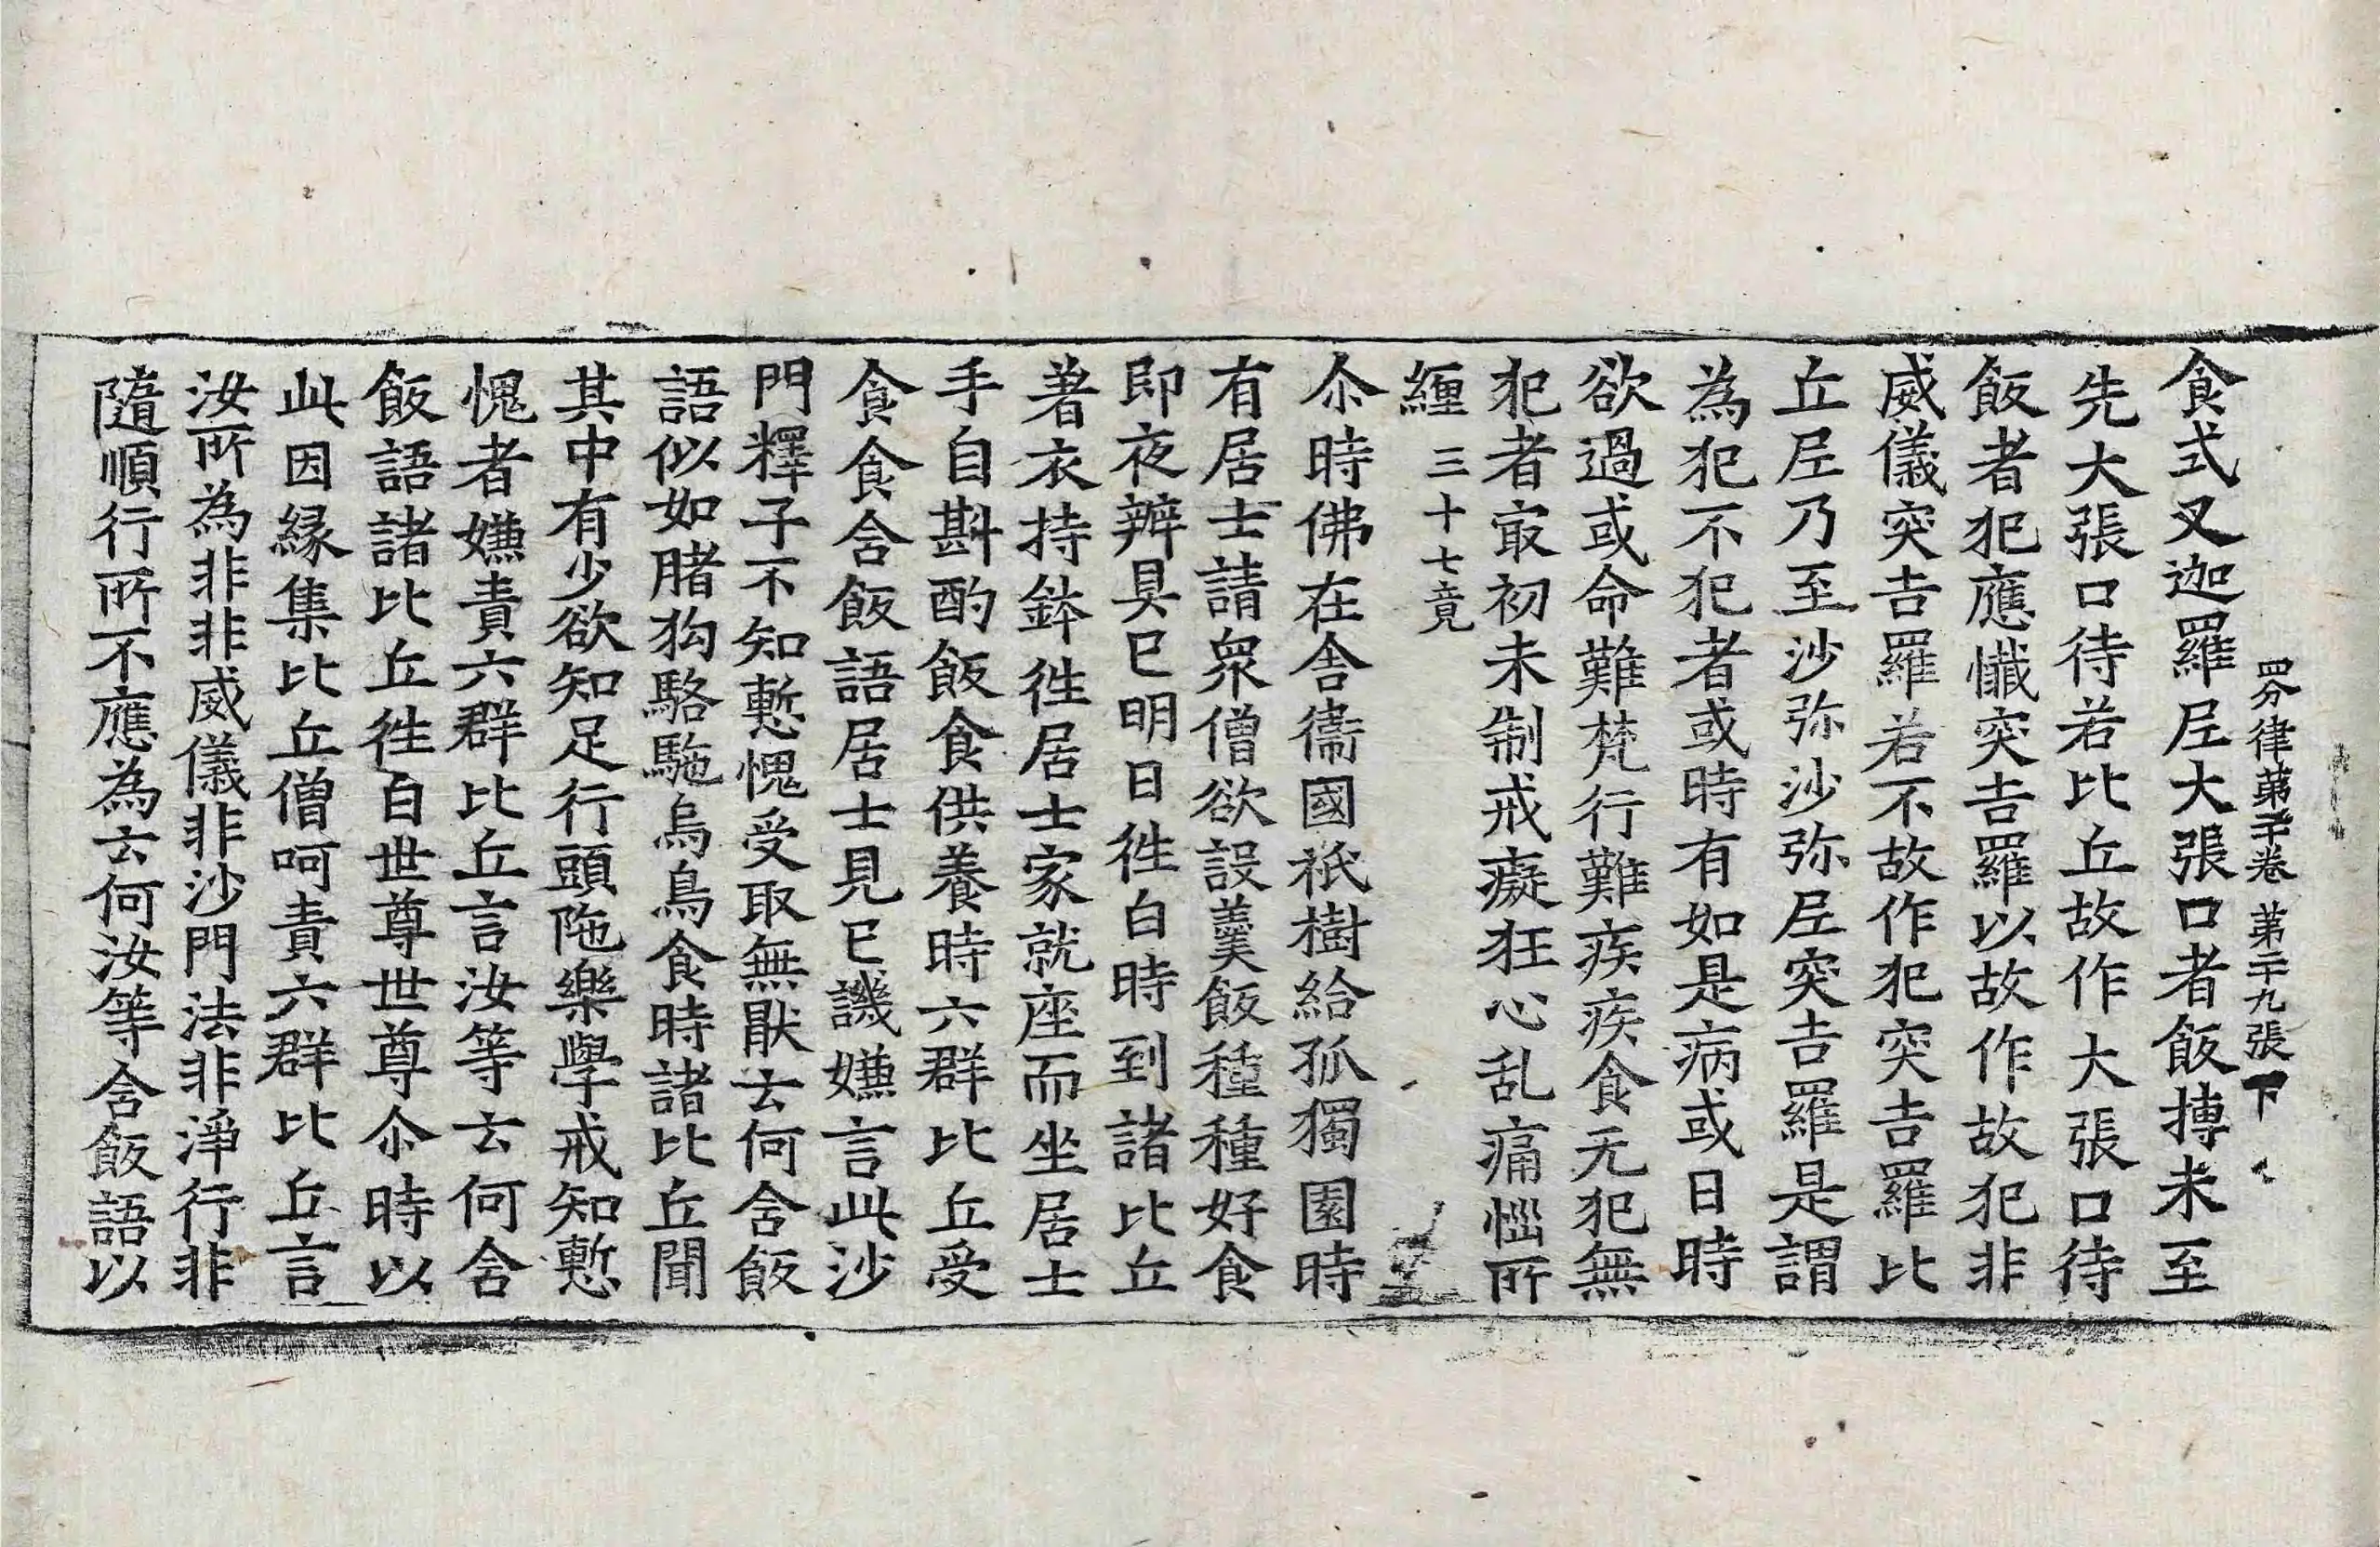 四分律第二十卷 第二十九張 下
食式叉迦羅尼大張口者飯摶未至
先大張口待若比丘故作大張口待
飯者犯應懺突吉羅以故作故犯非
威儀突吉羅若不故作犯突吉羅比
丘尼乃至沙弥沙弥尼突吉羅是謂
為犯不犯者或時有如是病或日時
欲過或命難梵行難疾疾食无犯無
犯者㝡初未制戒癡狂心乱痛惱所
纏 三十七竟
尒時佛在舍衞國祇樹給孤獨園時
有居士請衆僧欲設羹飯種種好食
即夜辨具已明日徃白時到諸比丘
著衣持鉢徃居士家就座而坐居士
手自斟酌飯食供養時六群比丘受
食食含飯語居士見已譏嫌言此沙
門釋子不知慙愧受取無猒云何含飯
語似如賭狗駱駞烏鳥食時諸比丘聞
其中有少欲知足行頭陁樂學戒知慙
愧者嫌責六群比丘言汝等云何含
飯語諸比丘徃白世尊世尊尒時以
此因縁集比丘僧呵責六群比丘言
汝所為非非威儀非沙門法非淨行非
隨順行所不應為云何汝等含飯語以